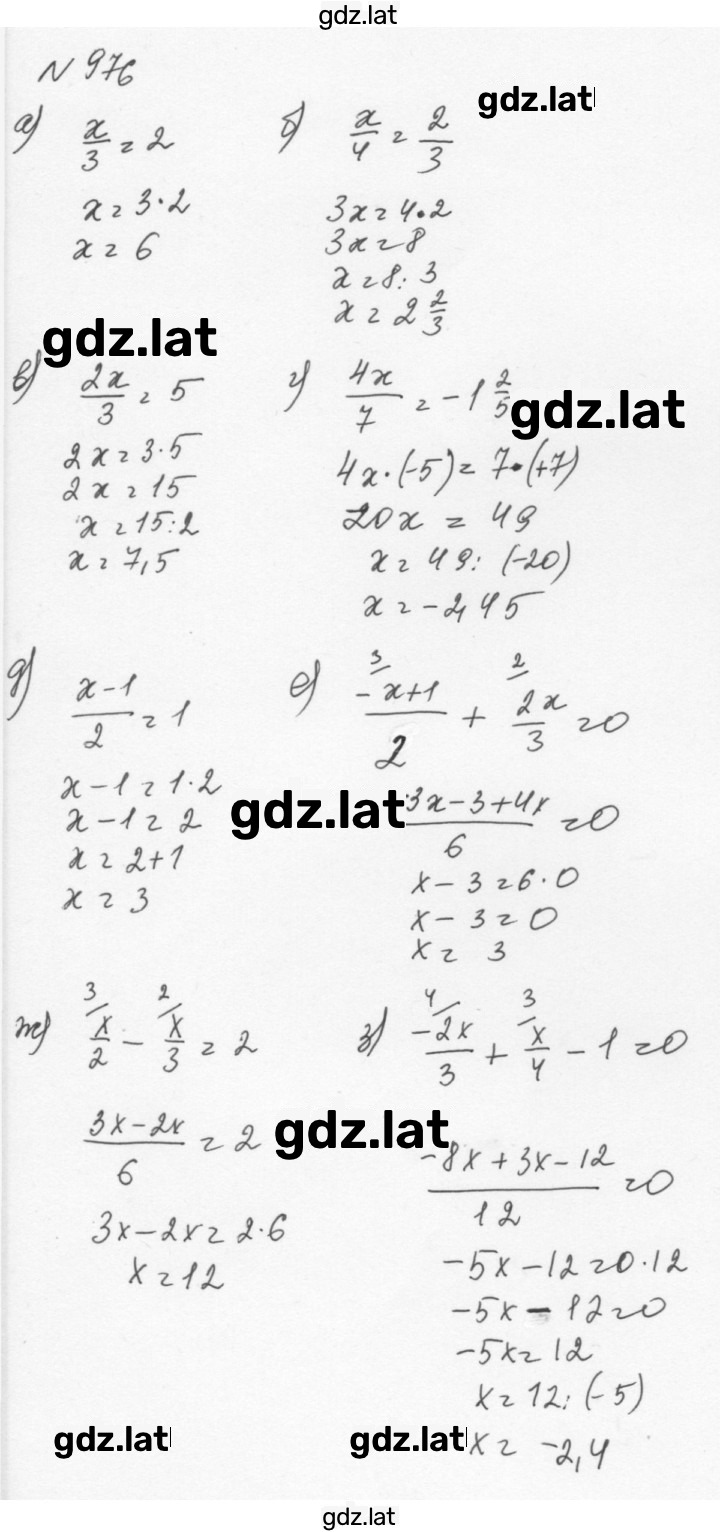 gdz.lat
N 976
gdz.lat
а) x/3 = 2
x = 3·2
x = 6
б) x/4 = 2/3
3x = 4·2
3x = 8
x = 8 : 3
x = 2 2/3
gdz.lat
в) 2x/3 = 5
2x = 3·5
2x = 15
x = 15:2
x = 7,5
г) 4x/7 = -1 2/5
gdz.lat
4x·(-5) = 7·(+7)
20x = 49
x = 49: (-20)
x = -2,45
д) x-1/2 = 1
x-1 = 1·2
x-1 = 2
x = 2+1
x = 3
е) 3/ -x+1/2 + 2/ 2x/3 = 0
gdz.lat
3x-3+4x/6 = 0
x-3 = 6·0
x-3 = 0
x = 3
ж) 3/ x/2 - 2/ x/3 = 2
3x-2x/6 = 2
gdz.lat
3x-2x = 2·6
x = 12
з) 4/ -2x/3 + 3/ x/4 - 1 = 0
-8x+3x-12/12 = 0
-5x-12 = 0·12
-5x-12 = 0
-5x = 12
x = 12: (-5)
x = -2,4
gdz.lat
gdz.lat
gdz.lat